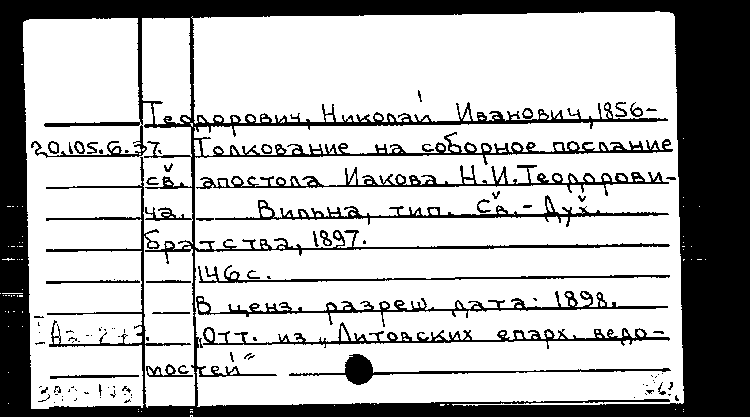 Теодорович, Николай Иванович, 1856-
20.105.6.37. Толкование на соборное послание
св. апостола Иакова. Н.И.Теодорови-
ча. Вильна, тип. Св.-Дух.
братства, 1897.
146 с.
В ценз. разреш. дата: 1898.
„Отт. из „Литовских епарх. ведо-
мостей"